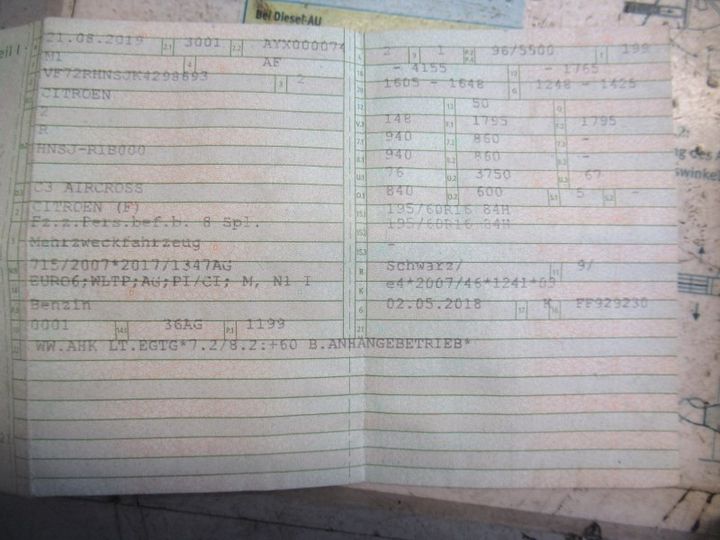 Bei Diesel-AU
21.08.2019 2.1 3001 2.2 AYX000074
M1 4 AF
VF72RHNSJK4298693 3 2
CITROEN
2
R
HNSJ-R1B000
C3 AIRCROSS
CITROEN (F)
Fz.z.Pers.bef.b. 8 Spl.
Mehrzweckfahrzeug
715/2007*2017/1347AG
EURO6;WLTP;AG;PI/CI; M, N1 I
Benzin
0001 14.1 36AG P.1 1199
WW.AHK LT.EGTG*7.2/8.2:+60 B.ANHÄNGEBETRIEB*
L 2 9 1 P.2 P.4 96/5500 T 199
18 - 4155 19 - 1765
20 1605 - 1648 G 1248 - 1425
12 13 50 Q
V.7 148 F.1 1795 F.2 1795
7.1 940 7.2 860 7.3 -
8.1 940 8.2 860 8.3 -
U.1 76 U.2 3750 U.3 67
O.1 840 O.2 600 S.1 5 S.2 -
15.1 195/60R16 84H
15.2 195/60R16 84H
15.3 -
R Schwarz/ 11 9/
K e4*2007/46*1241*03
6 02.05.2018 17 K 16 FF929230
21
ng des A
swinkel